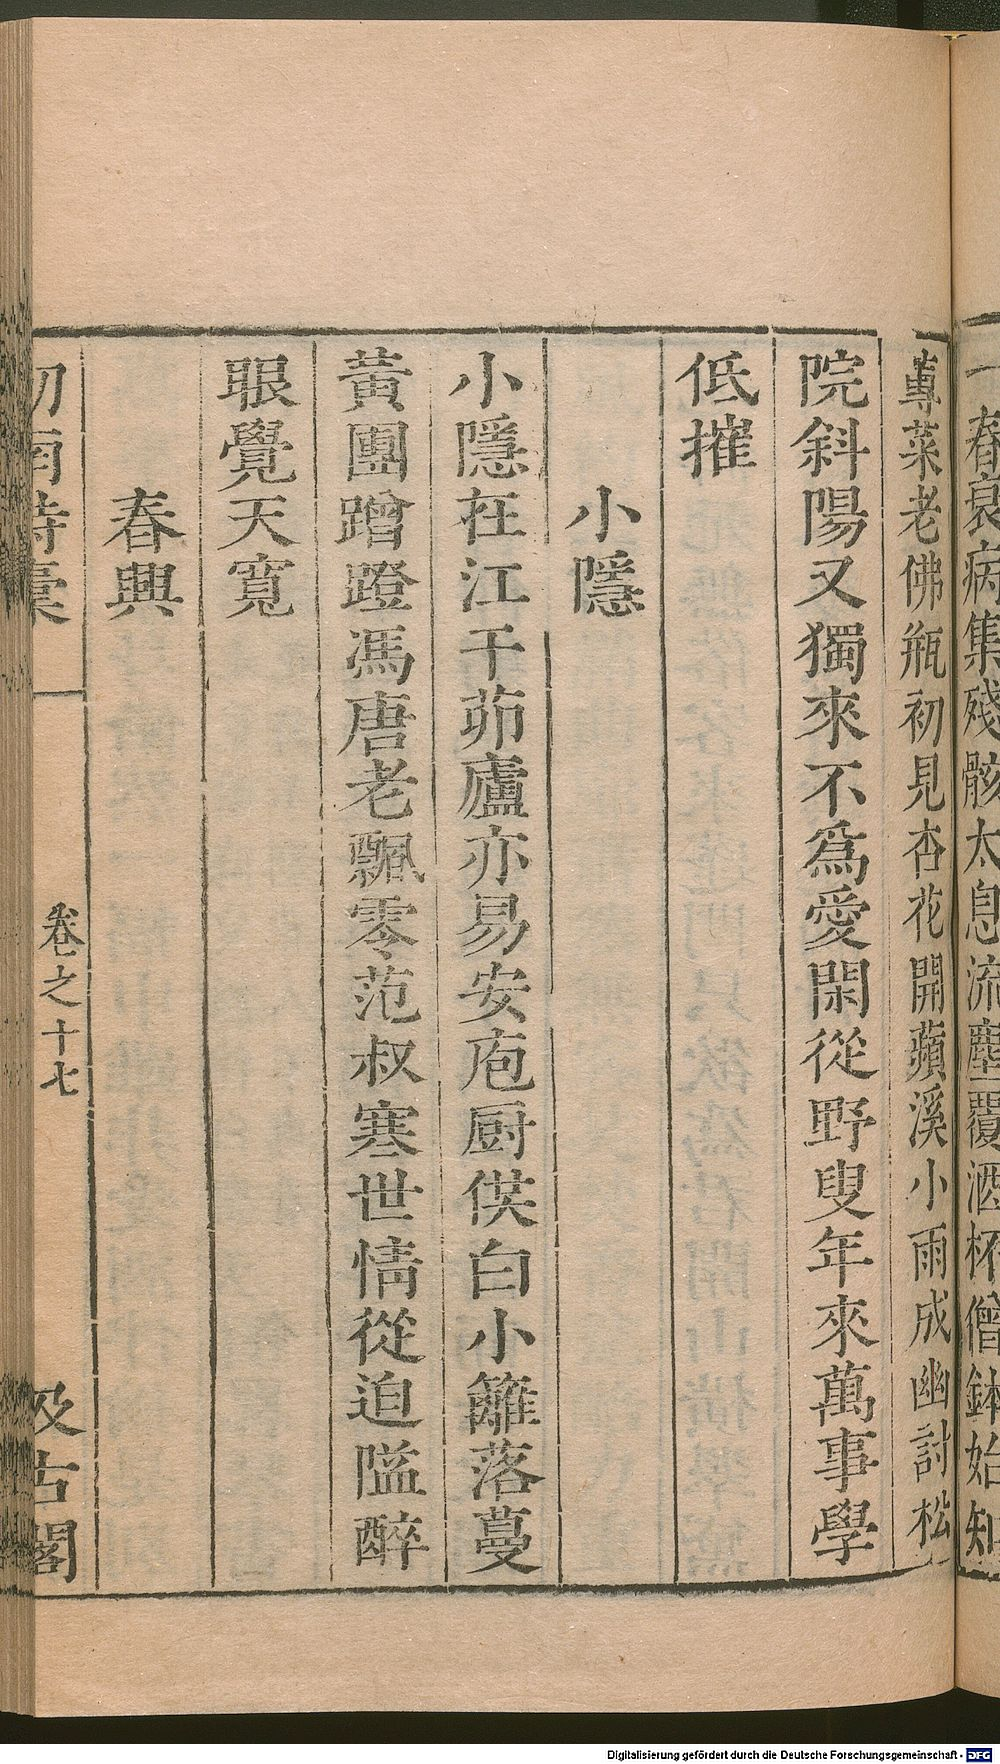 一春衰病集殘骸太息流塵覆酒杯僧鉢始知
蓴菜老佛瓶初見杏花開蘋溪小雨成幽討松
院斜陽又獨來不爲愛閑從野叟年來萬事學
低摧
小隱
小隱在江干茆廬亦易安庖厨供白小籬落蔓
黃團蹭蹬馮唐老飄零范叔寒世情從迫隘醉
眼覺天寬
春興
劒南詩稾 卷之十七 汲古閣
Digitalisierung gefördert durch die Deutsche Forschungsgemeinschaft - DFG